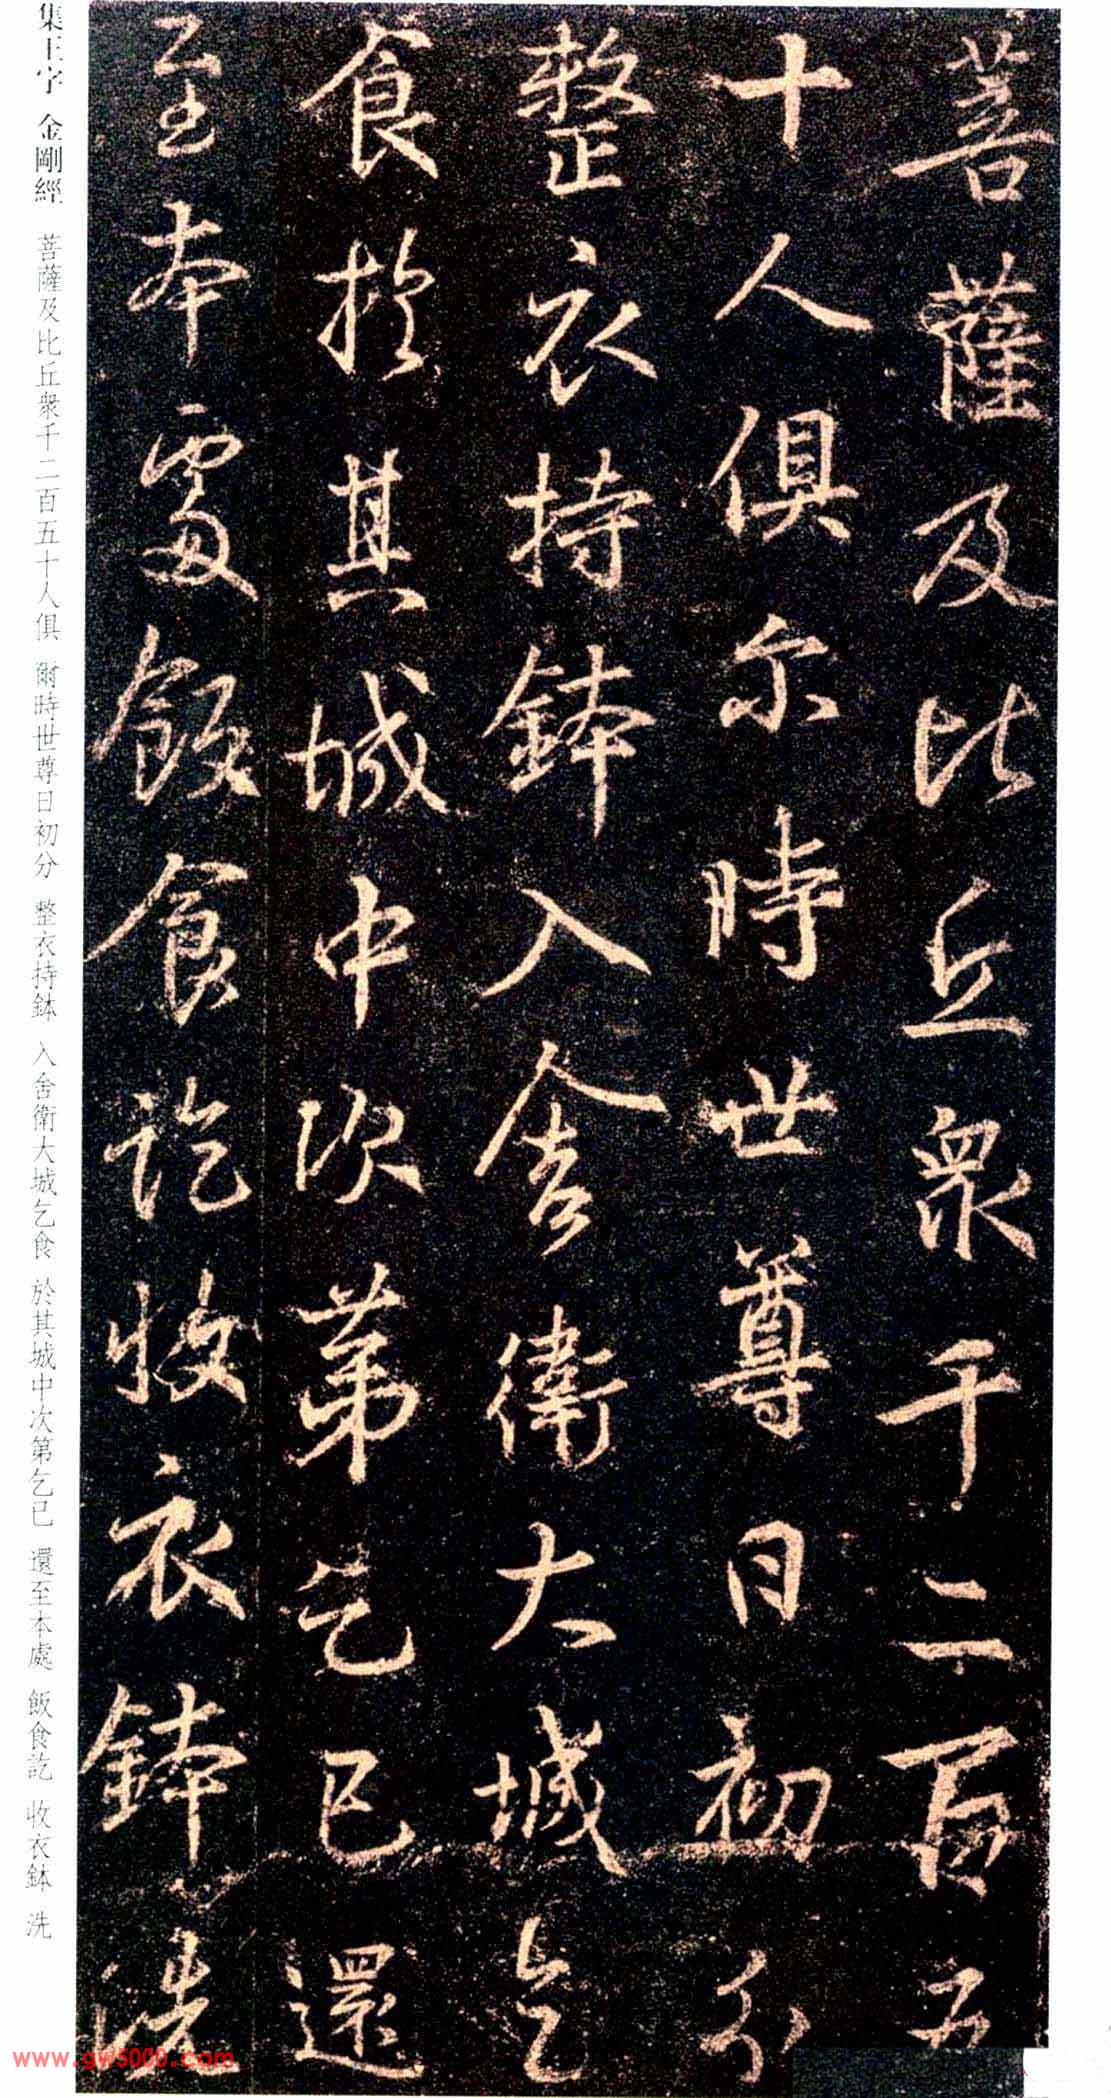 菩薩及比丘衆千二百五
十人俱尔時世尊日初分
整衣持鉢入舍衛大城乞
食於其城中次第乞已還
至本處飯食訖收衣鉢洗
集王字 金剛經 菩薩及比丘衆千二百五十人俱 爾時世尊日初分 整衣持鉢 入舍衛大城乞食 於其城中次第乞已 還至本處 飯食訖 收衣鉢 洗
www.gw5000.com